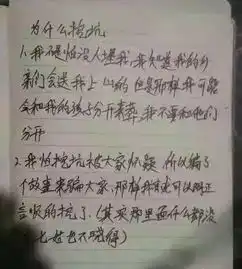 为什么挖坑
1、我不是怕没人埋我，我知道我的乡
亲们会送我上山的 但是那样我可能
会和我的孩子分开来葬，我不要和他们
分开
2、我怕挖坑被大家怀疑，所以编了
个故事来骗大家，那样我就可以顺正
言顺的挖了，（其实那里面什么都没
七姑也不晓得）